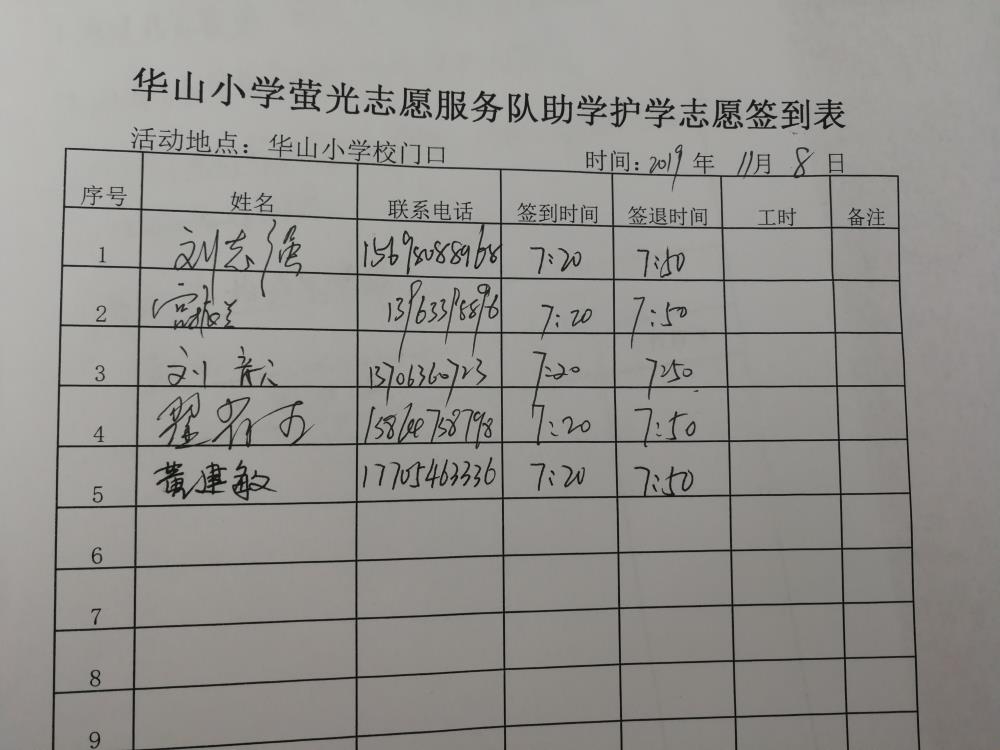 华山小学萤光志愿服务队助学护学志愿签到表
活动地点：华山小学校门口 时间：2019年 11月 8日
序号 姓名 联系电话 签到时间 签退时间 工时 备注
1 刘志强 15698088968 7:20 7:50
2 7:20 7:50
3 刘 13706360723 7:20 7:50
4 翟 7:20 7:50
5 黄建敏 17705463336 7:20 7:50
6
7
8
9